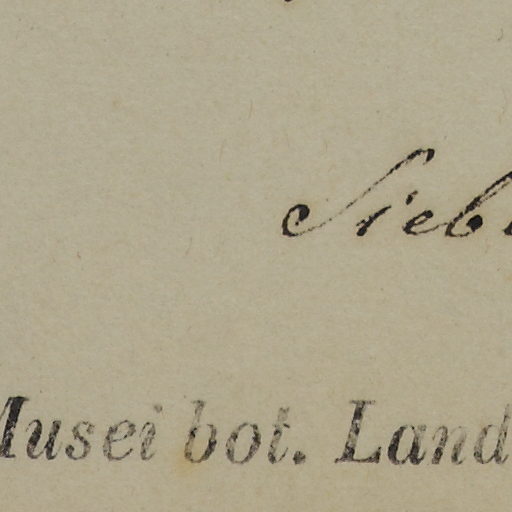 Sieb
Musei bot. Land